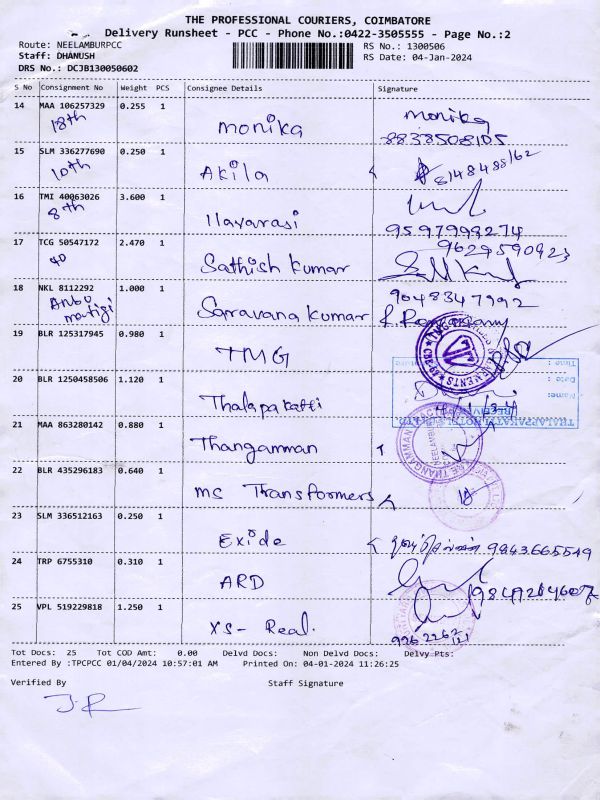 THE PROFESSIONAL COURIERS, COIMBATORE
Delivery Runsheet - PCC - Phone No.:0422-3505555 - Page No.:2
Route: NEELAMBURPCC RS No.: 1300506
Staff: DHANUSH RS Date: 04-Jan-2024
DRS No.: DCJB130050602
S No Consignment No Weight PCS Consignee Details Signature
14 MAA 106257329 0.255 1 monika monika
18th 8838508105
15 SLM 336277690 0.250 1 Akila 8148488162
10th
16 TMI 40063026 3.600 1 Ilavarasi
8th 9597999274
17 TCG 50547172 2.470 1 Sathish kumar 9629590923
40
18 NKL 8112292 1.000 1 Saravana kumar 9048347992
Anbu
19 BLR 125317945 0.980 1 TMG
20 BLR 1250458506 1.120 1 Thalapakatti
Time :
Date :
Name:
RECEIVED
21 MAA 863280142 0.880 1 Thangamman
22 BLR 435296183 0.640 1 ms Transformers
23 SLM 336512163 0.250 1 Exide 9943665549
24 TRP 6755310 0.310 1 ARD
25 VPL 519229818 1.250 1 XS- Real.
Tot Docs: 25 Tot COD Amt: 0.00 Delvd Docs: Non Delvd Docs: Delvy Pts:
Entered By :TPCPCC 01/04/2024 10:57:01 AM Printed On: 04-01-2024 11:26:25
Verified By Staff Signature